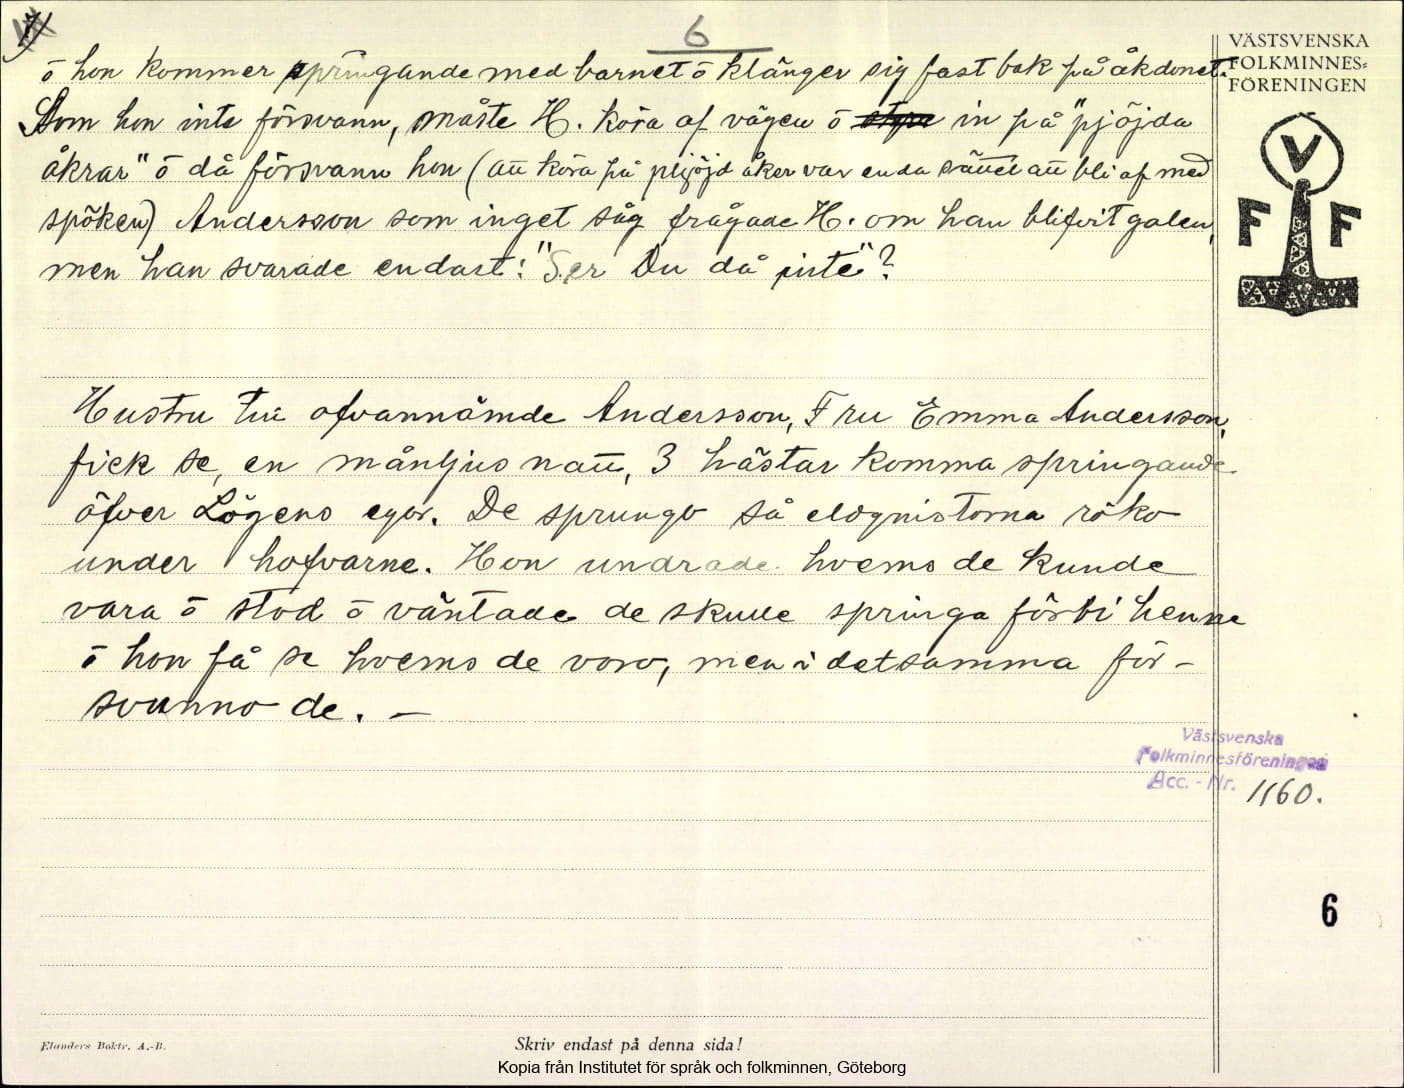 6
ō hon kommer springande med barnet ō klänger sig fast bak på åkdonet.
Som hon inte försvann, måste H. köra af vägen ō in på "pjöjda
åkrar" ō då försvann hon (att köra på plöjd åker var enda sättet att bli af med
spöken) Andersson som inget såg frågade H. om han blifvit galen,
men han svarade endast: "Ser Du då inte"?
Hustru till ofvannämde Andersson, Fru Emma Andersson,
fick se, en månljus natt, 3 hästar komma springande
öfver Lögens egor. De sprungo så eldgnistorna röko
under hofvarne. Hon undrade hvems de kunde
vara ō stod ō väntade de skulle springa förbi henne
ō hon få se hvems de voro, men i detsamma för-
svunno de. —
VÄSTSVENSKA
FOLKMINNES-
FÖRENINGEN
V
F F
Västsvenska
Folkminnesföreningen
Acc. - Nr. 1160.
6
Elanders Boktr. A.-B.
Skriv endast på denna sida!
Kopia från Institutet för språk och folkminnen, Göteborg